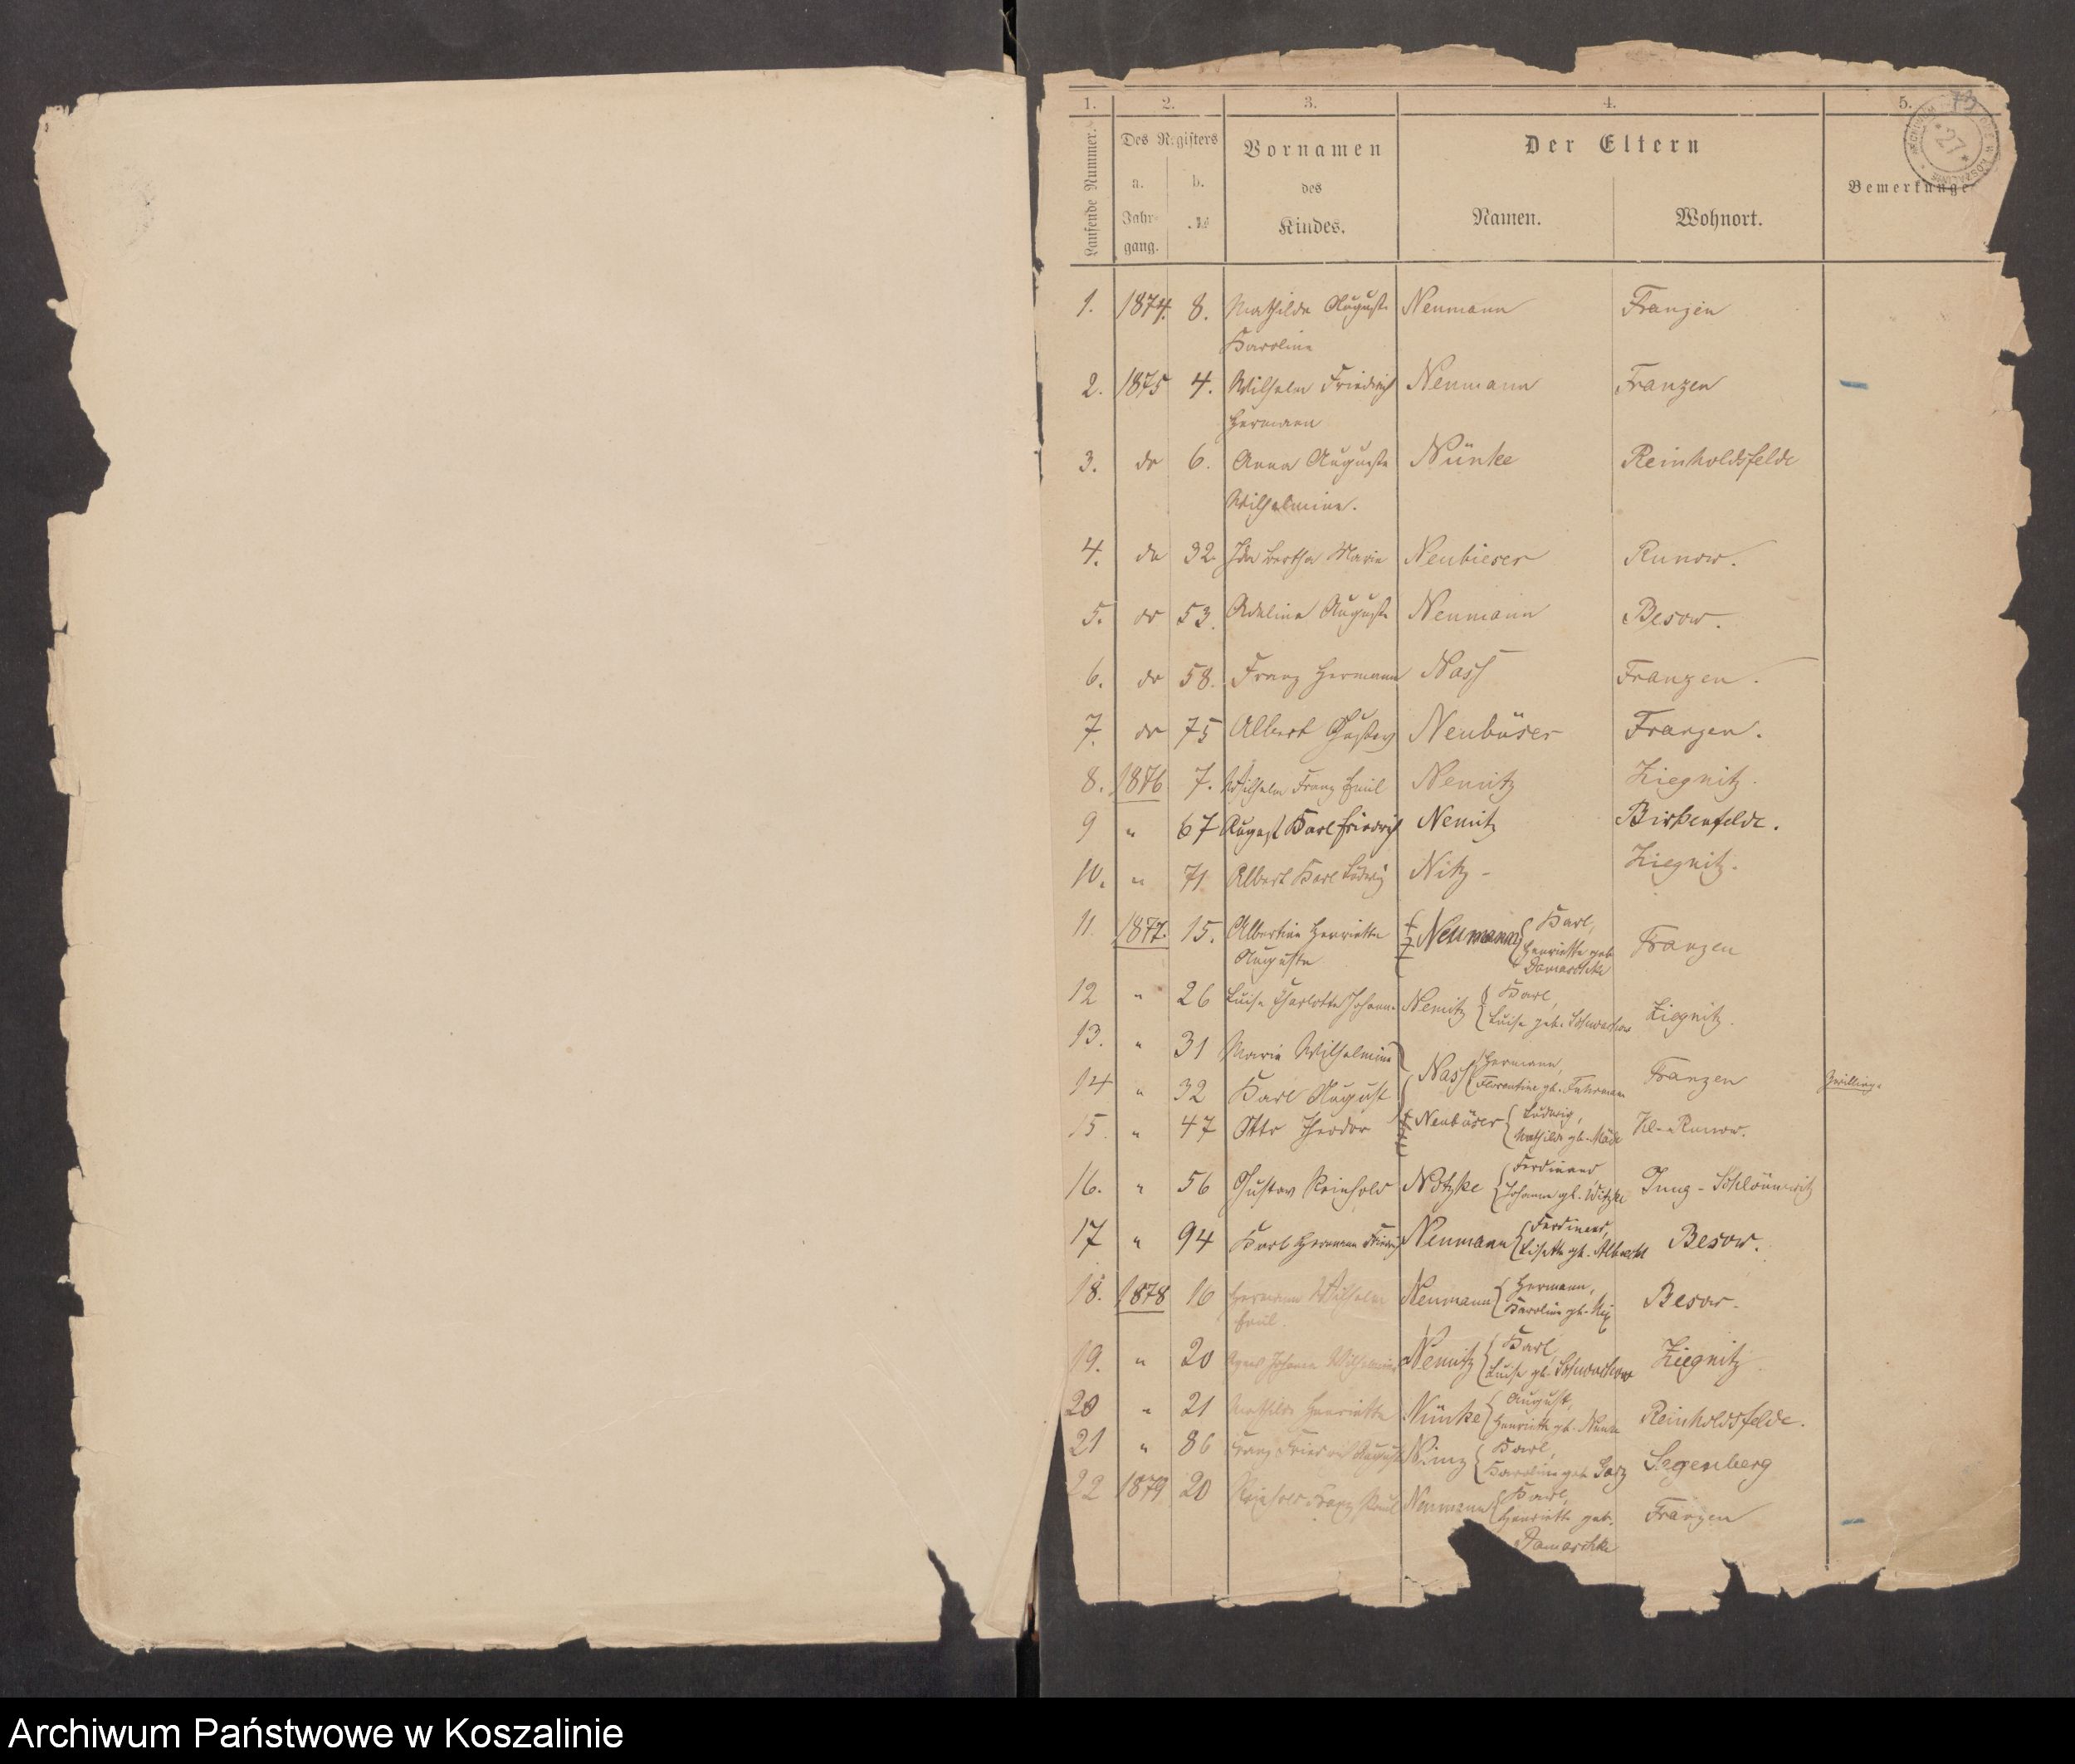 1. 2. 3. 4. 5.
Laufende Nummer. Des Registers Vornamen des Kindes. Der Eltern Bemerkunge
a. Jahrgang. b. № Namen. Wohnort.
ARCHIWUM W KOSZALINIE * 27 *
1. 1874. 8. Mathilde Auguste Neumann Franzen
Karoline
2. 1875 4. Wilhelm Friedrich Neumann Franzen
Hermann
3. do 6. Anna Auguste Nünke Reinholdsfelde
Wilhelmine.
4. do 32. Ida Bertha Marie Neubieser Runow.
5. do 53. Adeline Auguste Neumann Besow.
6. do 58. Franz Hermann Nass Franzen.
7. do 75 Albert Gustav Neubüser Franzen.
8. 1876 7. Wilhelm Franz Emil Nemitz Ziegnitz.
9 " 67 August Karl Friedrich Nemitz Birkenfelde.
10. " 71 Albert Karl Ludwig Nitz - Ziegnitz.
11. 1877. 15. Albertine Henriette Neumann Karl, Franzen
Auguste Henriette geb.
Damaschke
12 " 26 Luise Charlotte Johanne Nemitz Karl, Ziegnitz.
Luise geb.
13. " 31 Marie Wilhelmine
Nass Hermann, Franzen Zwillinge
14 " 32 Karl August Florentine gb. Fuhrmann
15. " 47 Otto Theodor Neubüser Ludwig, Kl. Runow.
Mathilde gb.
16. " 56 Gustav Reinhold Nötzke Ferdinand, Jung-Schlönnwitz
Johanna gb. Witzke
17 " 94 Karl Hermann Friedrich Neumann Ferdinand, Besow.
Lisette gb. Albrecht
18. 1878 16 Hermann Wilhelm Neumann Hermann, Besow.
Emil. Karoline gb.
19. " 20 Agnes Johanna Wilhelmine Nemitz Karl, Ziegnitz
Luise gb.
20 " 21 Mathilde Henriette Nünke August, Reinholdsfelde.
Henriette gb.
21 " 86 Franz Friedrich August Karl, Segenberg
Karoline geb.
22 1879 20 Reinhold Franz Paul Neumann Karl, Franzen
Henriette geb.
Damaschke
Archiwum Państwowe w Koszalinie